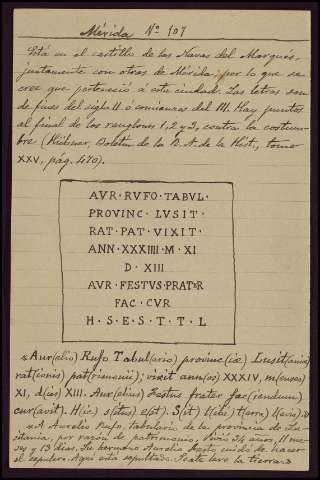 Mérida Nº 107
Está en el castillo de las Navas del Marqués,
juntamente con otras de Mérida; por lo que se
cree que perteneció á esta ciudad. Las letras son
de fines del siglo II ó comienzos del III. Hay puntos
al final de los renglones 1, 2 y 3, contra la costum-
bre (Hübner, Boletín de la R. A. de la Hist., tomo
XXV, pág. 470).
AVR · RVFO · TABVL ·
PROVINC · LVSIT ·
RAT · PAT · VIXIT ·
ANN · XXXIIII · M · XI
D · XIII
AVR · FESTVS · FRATER
FAC · CVR
H · S · E · S · T · T · L
«Aur(elio) Rufo Tabul(ario) provinc(iæ) Lusit(aniæ)
rat(ionis) pat(rimonii); vixit ann(os) XXXIV, m(enses)
XI, d(ies) XIII. Aur(elius) Festus frater fac(iendum)
cur(avit). H(ic) s(itus) e(st). S(it) t(ibi) t(erra) l(evis).»
«A Aurelio Rufo, tabulario de la provincia de Lu-
sitania, por razón de patrimonio. Vivió 34 años, 11 me-
ses y 13 días. Su hermano Aurelio Festo, cuidó de hacer
el sepulcro. Aquí está sepultado. Séate leve la tierra.»